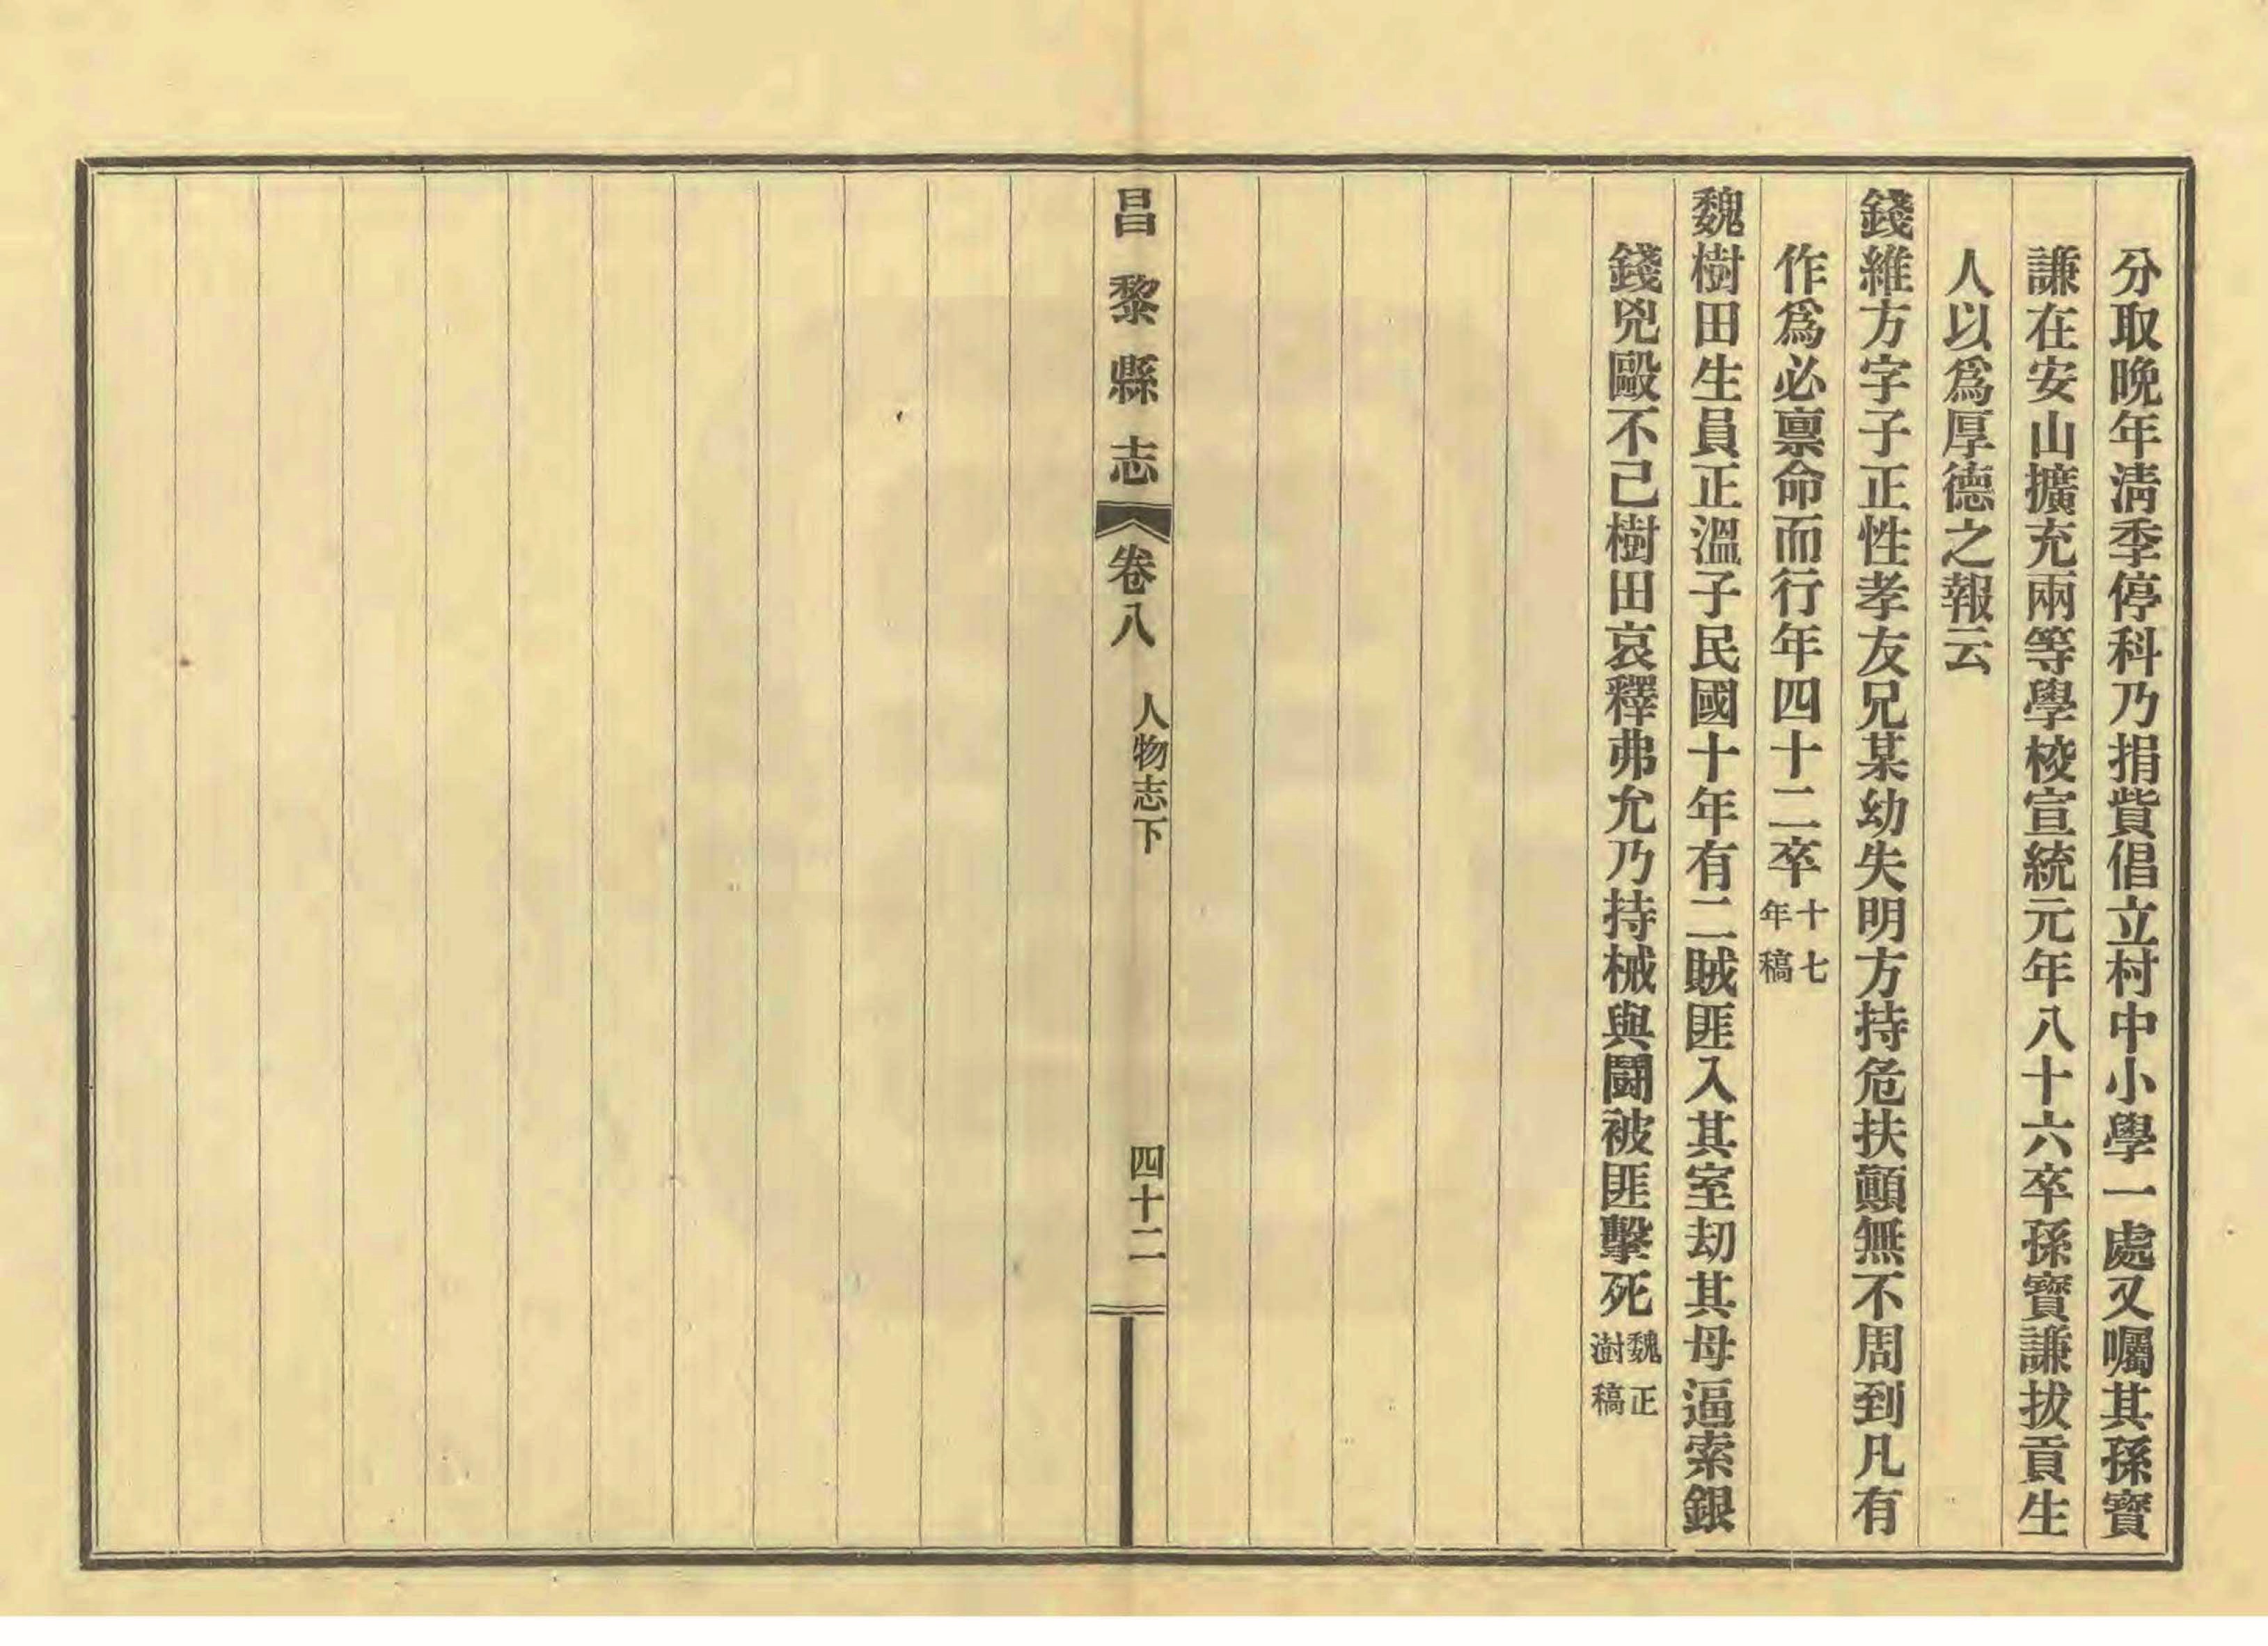 分取晚年淸季停科乃捐貲倡立村中小學一處又囑其孫寶
謙在安山擴充兩等學校宣統元年八十六卒孫寶謙拔貢生
人以爲厚德之報云
錢維方字子正性孝友兄某幼失明方持危扶顚無不周到凡有
作爲必禀命而行年四十二卒十七年稿
魏樹田生員正溫子民國十年有二賊匪入其室刧其母逼索銀
錢兇毆不已樹田哀釋弗允乃持械與鬭被匪擊死魏正澍稿
昌黎縣志 卷八 人物志下 四十二